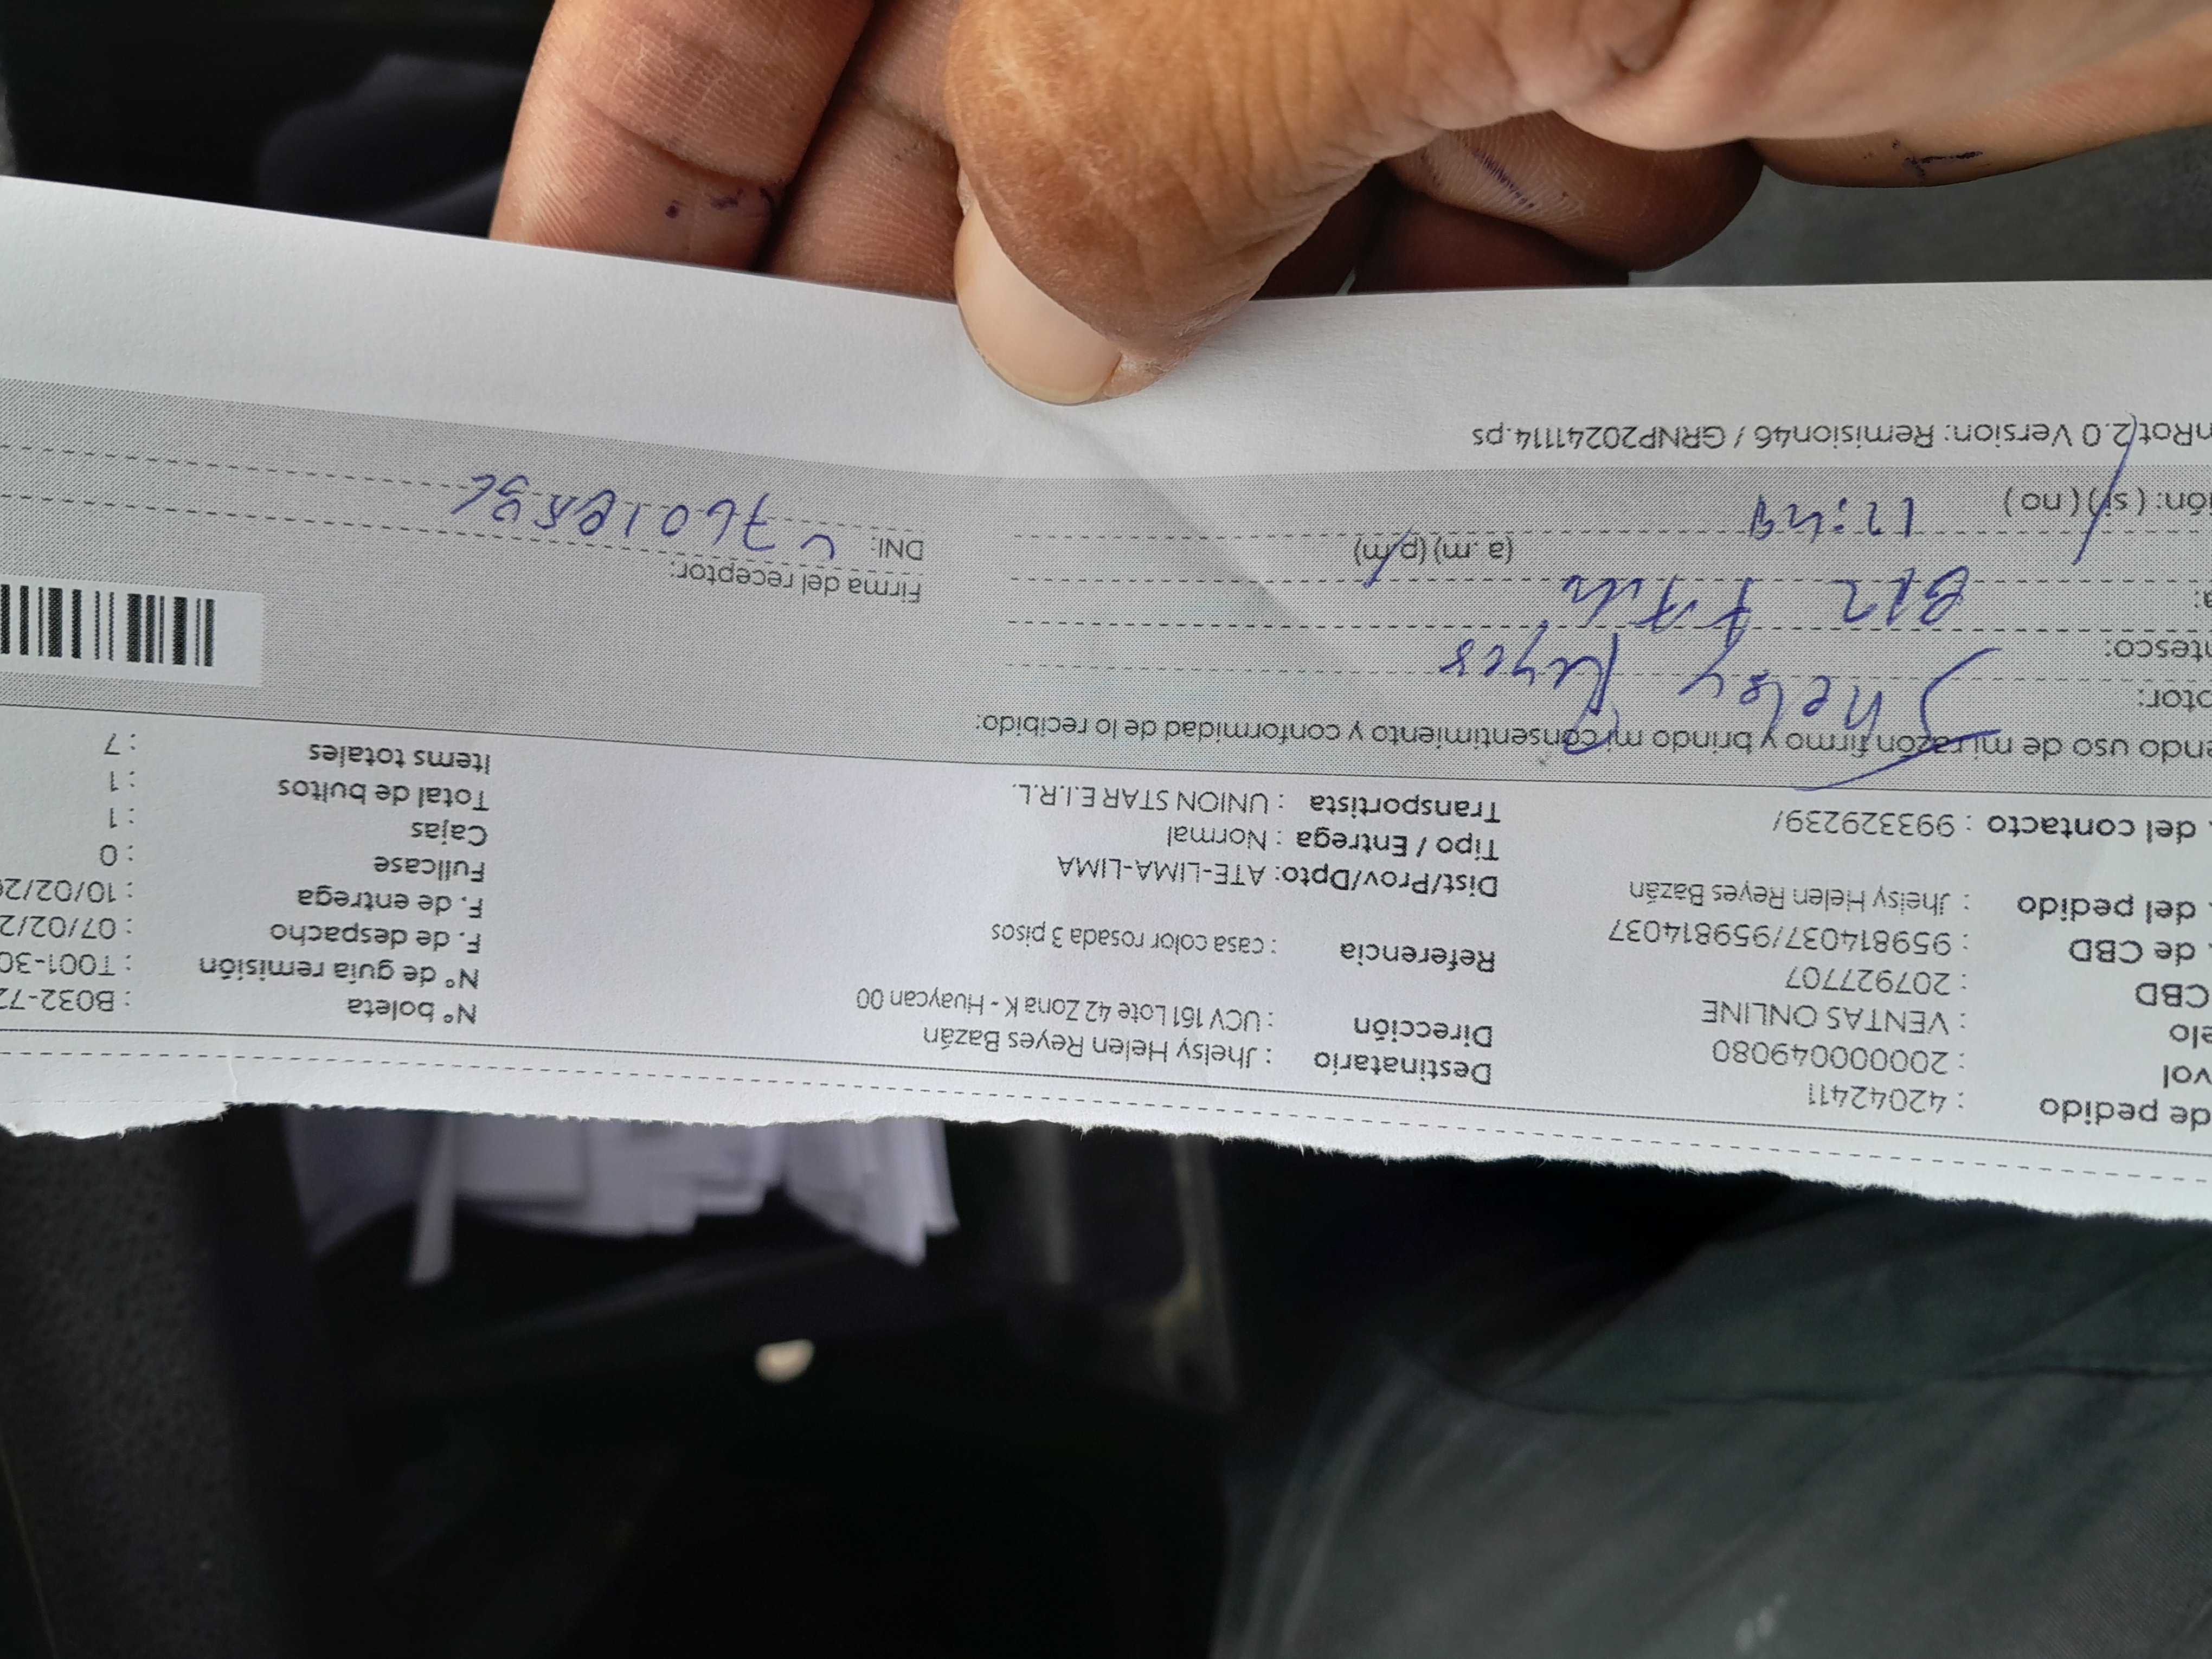 de pedido : 42042411
vol : 20000049080
elo : VENTAS ONLINE
CBD : 207927707
. de CBD : 959814037/959814037
. del pedido : Jhelsy Helen Reyes Bazán
. del contacto : 993329239/
Destinatario : Jhelsy Helen Reyes Bazán
Dirección : UCV 161 Lote 42 Zona K - Huaycan 00
Referencia : casa color rosada 3 pisos
Dist/Prov/Dpto: ATE-LIMA-LIMA
Tipo / Entrega : Normal
Transportista : UNION STAR E.I.R.L.
N° boleta : B032-72
N° de guía remisión : T001-30
F. de despacho : 07/02/2
F. de entrega : 10/02/20
Fullcase : 0
Cajas : 1
Total de bultos : 1
Items totales : 7
endo uso de mi razón firmo y brindo mi consentimiento y conformidad de lo recibido:
ptor: Jhelsy Reyes
ntesco:
a:
(a. m) (p. m)
ión: ( si ) ( no )
Firma del receptor:
DNI:
nRot 2.0 Version: Remision46 / GRNP20241114.ps